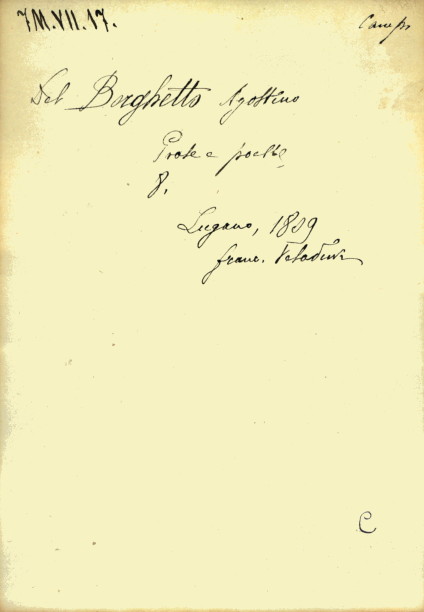 7M.VII.17.
Del Borghetto Agostino
Prose e poesie
8.
Lugano, 1809
franc. Veladini
C